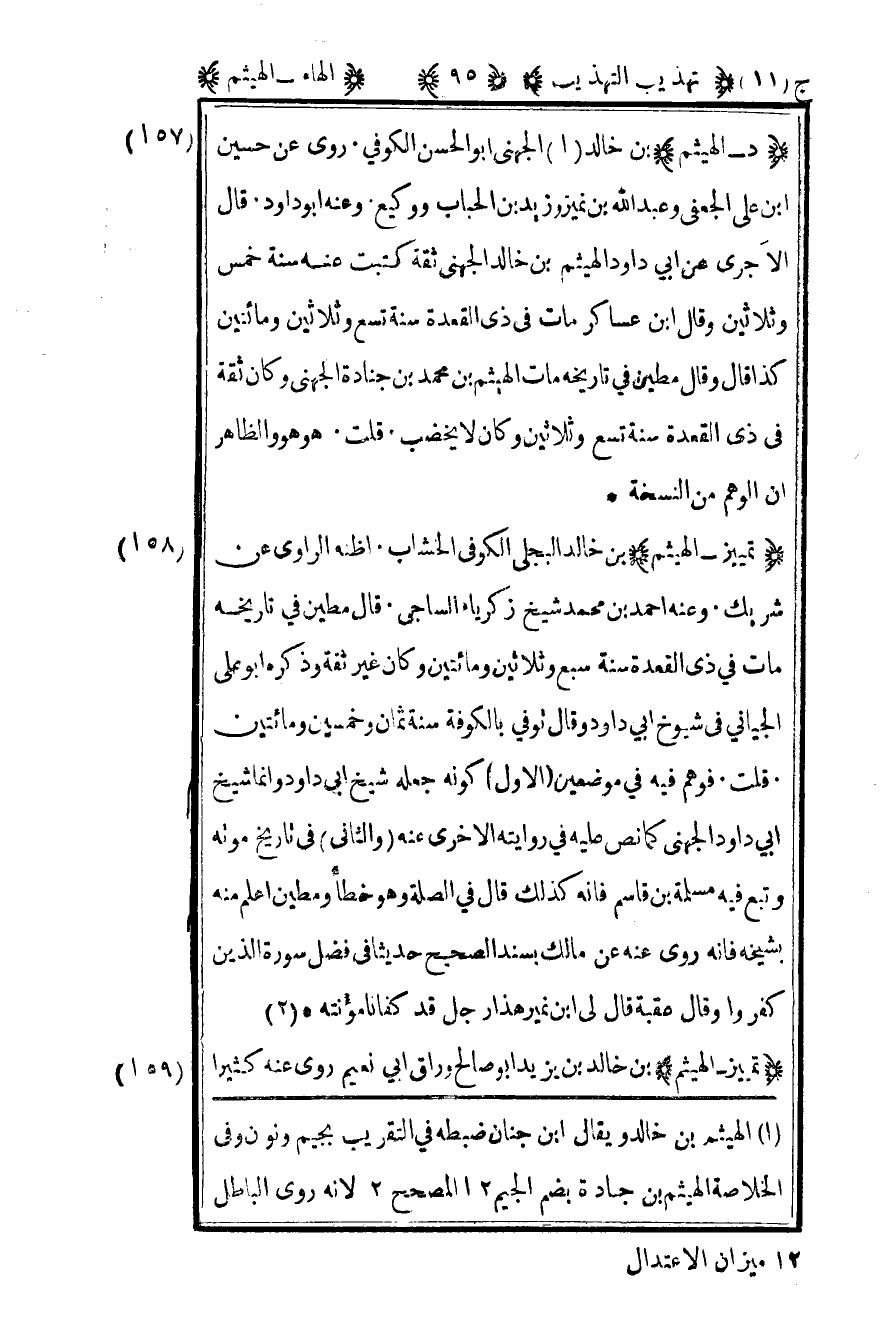 ج (١١) ﴿ تهذيب التهذيب ﴾ ﴿ ٩٥ ﴾ ﴿ الهاء ـ الهيثم ﴾
﴿ د ـ الهيثم ﴾ بن خالد (١) الجهنى ابو الحسن الكوفي ٠ روى عن حسين (١٥٧)
ابن على الجعفى وعبد الله بن نمير وزيد بن الحباب ووكيع ٠ وعنه ابو داود ٠ قال
الآجرى عن ابي داود الهيثم بن خالد الجهنى ثقة كتبت عنه سنة خمس
وثلاثين وقال ابن عساكر مات فى ذى القعدة سنة تسع وثلاثين ومائتين
كذا قال وقال مطين في تاريخه مات الهيثم بن محمد بن جنادة الجهنى وكان ثقة
فى ذى القعدة سنة تسع وثلاثين وكان لا يخضب ٠ قلت ٠ هو هو والظاهر
ان الوهم من النسخة •
﴿ تمييز ـ الهيثم ﴾ بن خالد البجلى الكوفى الخشاب ٠ اظنه الراوى عن ٠ (١٥٨)
شريك ٠ وعنه احمد بن محمد شيخ زكرياء الساجى ٠ قال مطين في تاريخه
مات في ذى القعدة سنة سبع وثلاثين ومائتين وكان غير ثقة وذكره ابو على
الجياني فى شيوخ ابي داود وقال توفي بالكوفة سنة ثمان وخمسين ومائتين
٠ قلت ٠ فوهم فيه في موضعين (الاول) كونه جعله شيخ ابى داود وانما شيخ
ابي داود الجهنى كما نص عليه في روايته الاخرى عنه (والثانى) فى تاريخ موته
وتبع فيه مسلمة بن قاسم فانه كذلك قال في الصلة وهو خطأ ومطين اعلم منه
بشيخه فانه روى عنه عن مالك بسند الصحيح حديثا فى فضل سورة الذين
كفروا وقال عقبة قال لى ابن نمير هذا رجل قد كفانا مؤنته • (٢)
﴿ تمييز ـ الهيثم ﴾ بن خالد بن يزيد ابو صالح وراق ابي نعيم روى عنه كثيرا (١٥٩)
(١) الهيثم بن خالد ويقال ابن جنان ضبطه في التقريب بجيم ونون وفى
الخلاصة الهيثم بن جنادة بضم الجيم ١٢ المصحح ٢ لانه روى الباطل
١٢ ميزان الاعتدال